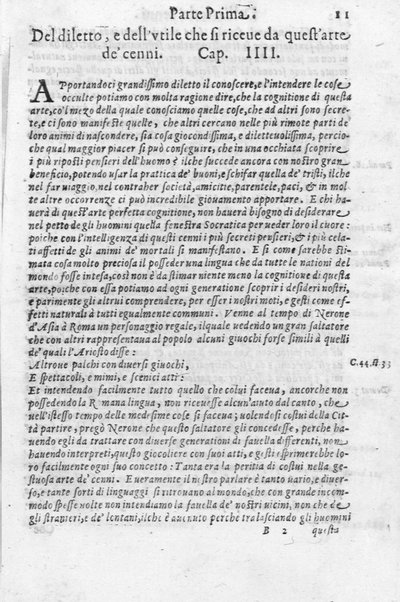 Parte Prima. 11
Del diletto, e dell'vtile che si riceue da quest'arte
de' cenni. Cap. IIII.
APportandoci grandissimo diletto il conoscere, e l'intendere le cose
occulte potiamo con molta ragione dire, che la cognitione di questa
arte, co'l mezo della quale conosciamo quelle cose, che ad altri sono secre-
te, e ci sono manifeste quelle, che altri cercano nelle più rimote parti de
loro animi di nascondere, sia cosa giocondissima, e dilettevolissima, percio-
che qual maggior piacer si può conseguire, che in una occhiata scoprire
i più riposti pensieri dell'huomo? ilche succede ancora con nostro gran
beneficio, potendo usar la prattica de' buoni, e schifar quella de' tristi, ilche
nel far uiaggio, nel contraher società, amicitie, parentele, paci, & in mol
te altre occorrenze ci può incredibile giouamento apportare. E chi ha-
uerà di quest'arte perfetta cognitione, non hauerà bisogno di desiderare
nel petto de gli huomini quella fenestra Socratica per ueder loro il cuore:
poiche con l'intelligenza di questi cenni i più secreti pensieri, & i più cela-
ti affetti de gli animi de' mortali si manifestano. E si come sarebbe sti-
mata cosa molto preciosa il posseder una lingua che da tutte le nationi del
mondo fosse intesa, così non è da stimar niente meno la cognitione di questa
arte, poiche con essa potiamo ad ogni generatione scoprir i desideri nostri,
e parimente gli altrui comprendere, per esser i nostri moti, e gesti come ef-
fetti naturali à tutti egualmente communi. Venne al tempo di Nerone
d'Asia à Roma un personaggio regale, il quale uedendo un gran saltatore
che con altri rappresentaua al popolo alcuni giuochi forse simili à quelli
de' quali l'Ariosto disse:
Altroue palchi con diuersi giuochi, C. 44. st. 33
E spettacoli, e mimi, e scenici atti:
Et intendendo facilmente tutto quello che colui faceua, ancorche non
possedendo la Romana lingua, non riceuesse alcun'aiuto dal canto, che
nell'istesso tempo delle medesime cose si faceua; uolendosi costui della Cit-
tà partire, pregò Nerone che questo saltatore gli concedesse, perche ha-
uendo egli da trattare con diuerse generationi di fauella differenti, non
hauendo interpreti, questo giocoliere con suoi atti, e gesti esprimerebbe
loro facilmente ogni suo concetto: Tanta era la peritia di costui nella ge-
stuosa arte de' cenni. E ueramente il nostro parlare è tanto uario, e diuer-
so, e tante sorti di linguaggi si ritrouano al mondo, che con grande incom-
modo spesse uolte non intendiamo la fauella de' nostri uicini, non che de
gli stranieri, e de' lontani, ilche è auenuto perche tralasciando gli huomini
B 2 questa